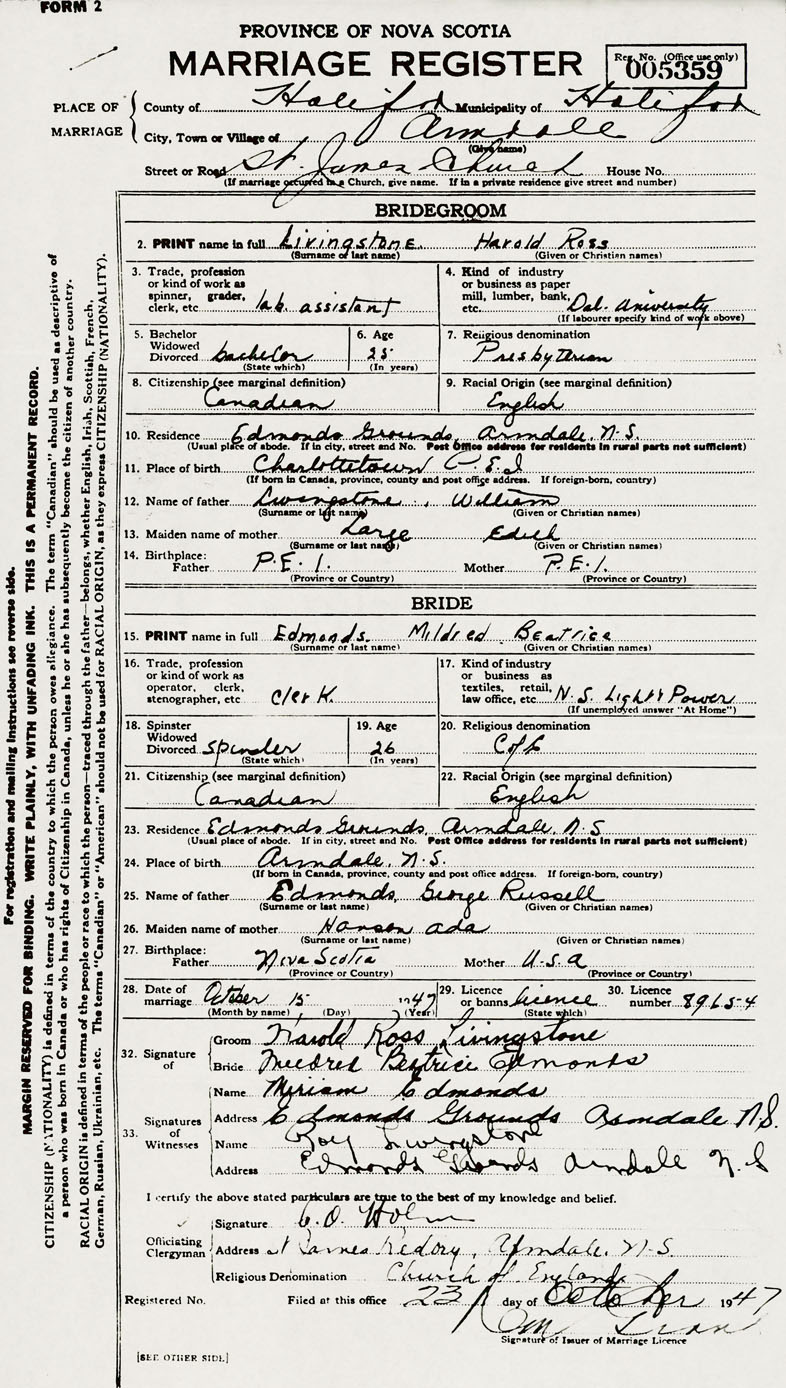 FORM 2
PROVINCE OF NOVA SCOTIA
MARRIAGE REGISTER
Reg. No. (Office use only)
005359
PLACE OF MARRIAGE
County of Halifax Municipality of Halifax
City, Town or Village of Armdale
(Give name)
Street or Road St. James Church House No.
(If marriage occurred in a Church, give name. If in a private residence give street and number)
BRIDEGROOM
2. PRINT name in full Livingstone. Harold Ross
(Surname or last name) (Given or Christian names)
3. Trade, profession or kind of work as spinner, grader, clerk, etc lab. assistant
4. Kind of industry or business as paper mill, lumber, bank, etc. Dal. University
(If labourer specify kind of work above)
5. Bachelor Widowed Divorced bachelor
(State which)
6. Age 25
(In years)
7. Religious denomination
Presbyterian
8. Citizenship (see marginal definition)
Canadian
9. Racial Origin (see marginal definition)
English
10. Residence Edmonds Grounds, Armdale, N.S.
(Usual place of abode. If in city, street and No. Post Office address for residents in rural parts not sufficient)
11. Place of birth Charlottetown P.E.I
(If born in Canada, province, county and post office address. If foreign-born, country)
12. Name of father Livingstone, William
(Surname or last name) (Given or Christian names)
13. Maiden name of mother Large Edith
(Surname or last name) (Given or Christian names)
14. Birthplace:
Father P.E.I. Mother P.E.I.
(Province or Country) (Province or Country)
BRIDE
15. PRINT name in full Edmonds. Mildred Beatrice
(Surname or last name) (Given or Christian names)
16. Trade, profession or kind of work as operator, clerk, stenographer, etc clerk
17. Kind of industry or business as textiles, retail, law office, etc. N.S. Light & Power
(If unemployed answer "At Home")
18. Spinster Widowed Divorced spinster
(State which)
19. Age 26
(In years)
20. Religious denomination
C of E
21. Citizenship (see marginal definition)
Canadian
22. Racial Origin (see marginal definition)
English
23. Residence Edmonds Grounds, Armdale, N.S
(Usual place of abode. If in city, street and No. Post Office address for residents in rural parts not sufficient)
24. Place of birth Armdale, N.S.
(If born in Canada, province, county and post office address. If foreign-born, country)
25. Name of father Edmonds, George Russell
(Surname or last name) (Given or Christian names)
26. Maiden name of mother Hanson Ada
(Surname or last name) (Given or Christian names)
27. Birthplace:
Father Nova Scotia Mother U.S.A
(Province or Country) (Province or Country)
28. Date of marriage October 15 1947
(Month by name) (Day) (Year)
29. Licence or banns licence
(State which)
30. Licence number 89654
32. Signature of
Groom Harold Ross Livingstone
Bride Mildred Beatrice Edmonds
33. Signatures of Witnesses
Name Miriam Edmonds
Address Edmonds Grounds Armdale N.S.
Name Roy Livingstone
Address Edmonds Grounds Armdale N.S
I certify the above stated particulars are true to the best of my knowledge and belief.
Officiating Clergyman
Signature
Address St James Rectory, Armdale, N.S.
Religious Denomination Church of England
Registered No. Filed at this office 23 day of October 1947
Signature of Issuer of Marriage Licence
[SEE OTHER SIDE]
For registration and mailing instructions see reverse side.
MARGIN RESERVED FOR BINDING. WRITE PLAINLY, WITH UNFADING INK. THIS IS A PERMANENT RECORD.
CITIZENSHIP (NATIONALITY) is defined in terms of the country to which the person owes allegiance. The term "Canadian" should be used as descriptive of
a person who was born in Canada or who has rights of Citizenship in Canada, unless he or she has subsequently become the citizen of another country.
RACIAL ORIGIN is defined in terms of the people or race to which the person—traced through the father—belongs, whether English, Irish, Scottish, French,
German, Russian, Ukrainian, etc. The terms "Canadian" or "American" should not be used for RACIAL ORIGIN, as they express CITIZENSHIP (NATIONALITY).